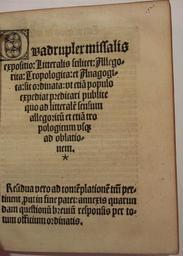 Quadruplex missalis
expositio: Litteralis scilicet: Allego-
rica: Tropologica: et Anagogi-
ca: sic ordinata: vt etiā populo
expediat predicari publice
quo ad litteralē sensum
allegoricū et etiā tro
pologicum vsq
ad oblatio-
nem.
*
Residua vero ad contēplationē tm̄ per-
tinent, put in fine patet: annexis quarun
dam questionū breuiū responsis per to-
tum officium ordinatis.